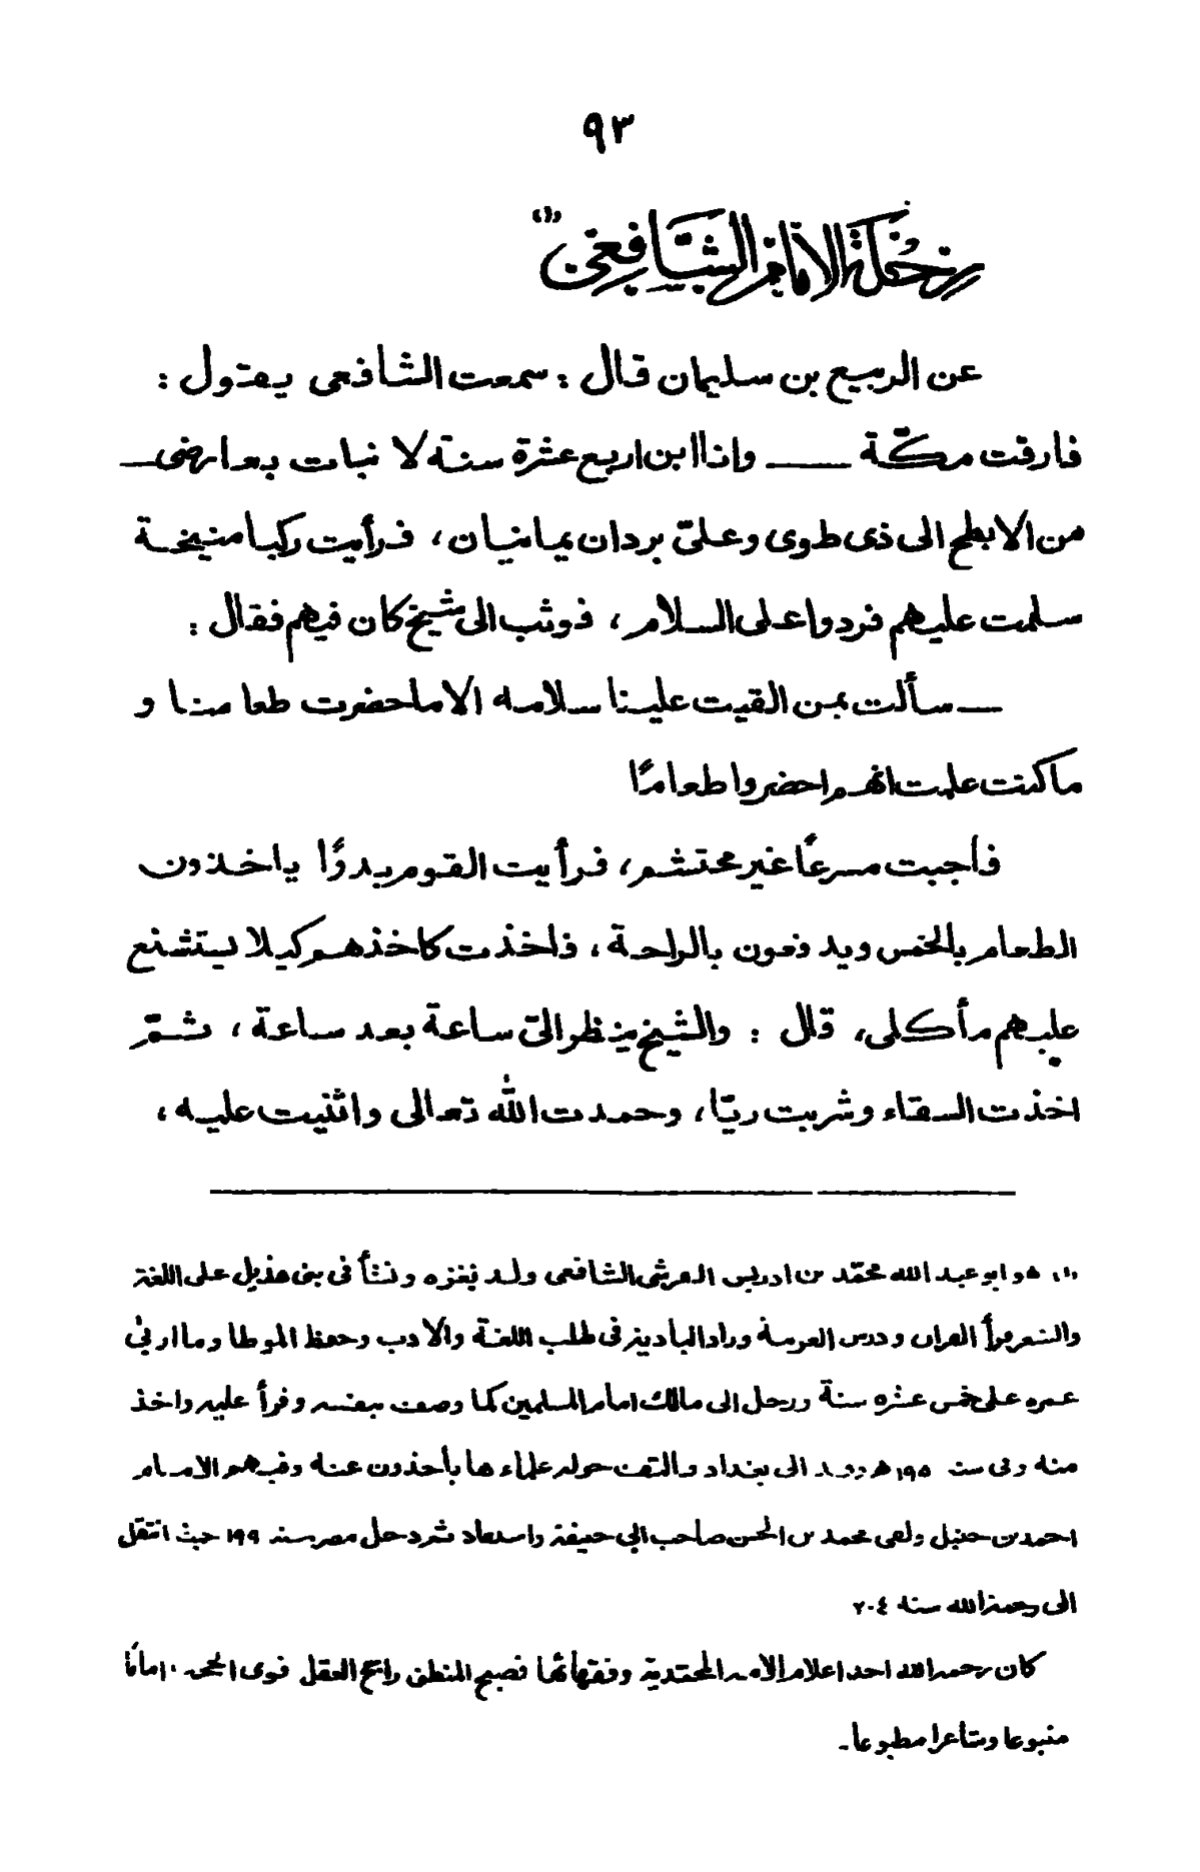 ٩٣
رحلة الامام الشافعي (١)
عن الربيع بن سليمان قال : سمعت الشافعى يقول :
فارقت مكّة ــــ وانا ابن اربع عشرة سنة لا نبات بعارضى ــ
من الابطح الى ذى طوى وعلىّ بردان يمانيان ، فرأيت ركبا منيخة
سلمت عليهم فردوا على السلام ، فوثب الى شيخ كان فيهم فقال :
ــ سألت بمن القيت علينا سلامه الا ما حضرت طعامنا و
ماكنت علمت انهم احضروا طعامًا
فأجبت مسرعًا غير محتشم ، فرأيت القوم بدوًا ياخذون
الطعام بالخمس ويدفعون بالراحة ، فاخذت كاخذهم كيلا يستشنع
عليهم مأكلى ، قال : والشيخ ينظر الىّ ساعة بعد ساعة ، ثمّ
اخذت السقاء وشربت ريّا ، وحمدت الله تعالى واثنيت عليه ،
(١) هو ابو عبد الله محمّد بن ادريس القرشى الشافعى ولد بغزه ونشأ فى بنى هذيل على اللغة
والشعر قرأ القران ودرس العربية وراد البادية فى طلب اللغة والادب وحفظ الموطا وما اربى
عمره على خمس عشره سنة ورحل الى مالك امام المسلمين كما وصف بنفسه وقرأ عليه واخذ
منه وفى سنة ١٩٥ هـ وفد الى بغداد والتفت حوله علماءها يأخذون عنه وفيهم الامام
احمد بن حنبل ولقى محمد بن الحسن صاحب ابي حنيفة واستفاد ثم رحل مصر سنة ١٩٩ حيث انتقل
الى رحمة الله سنة ٢٠٤
كان رحمه الله احد اعلام الامة المحمدية وفقهائها فصيح المنطق راجح العقل قوى الحجة اماما
متبوعا وشاعرا مطبوعا ـ